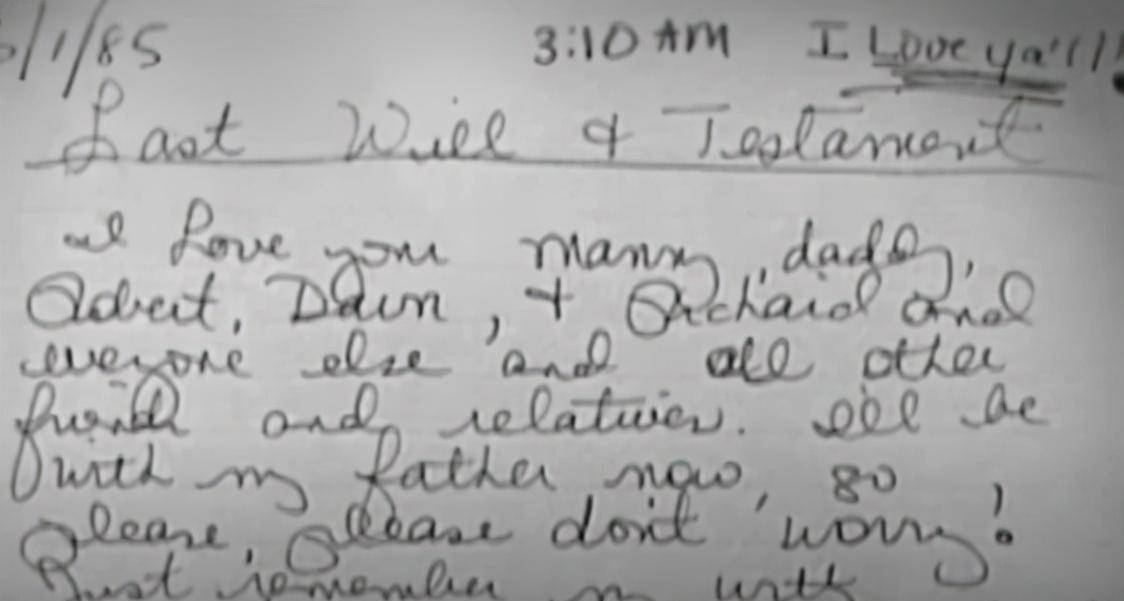 /1/85 3:10 AM I Love ya'll!
Last Will & Testament
I Love you mamy, daddy,
Robert, Dawn, + Richard and
everyone else and all other
friends and relatives. I'll be
with my father now, so
please, please don't worry!
Just remember my with